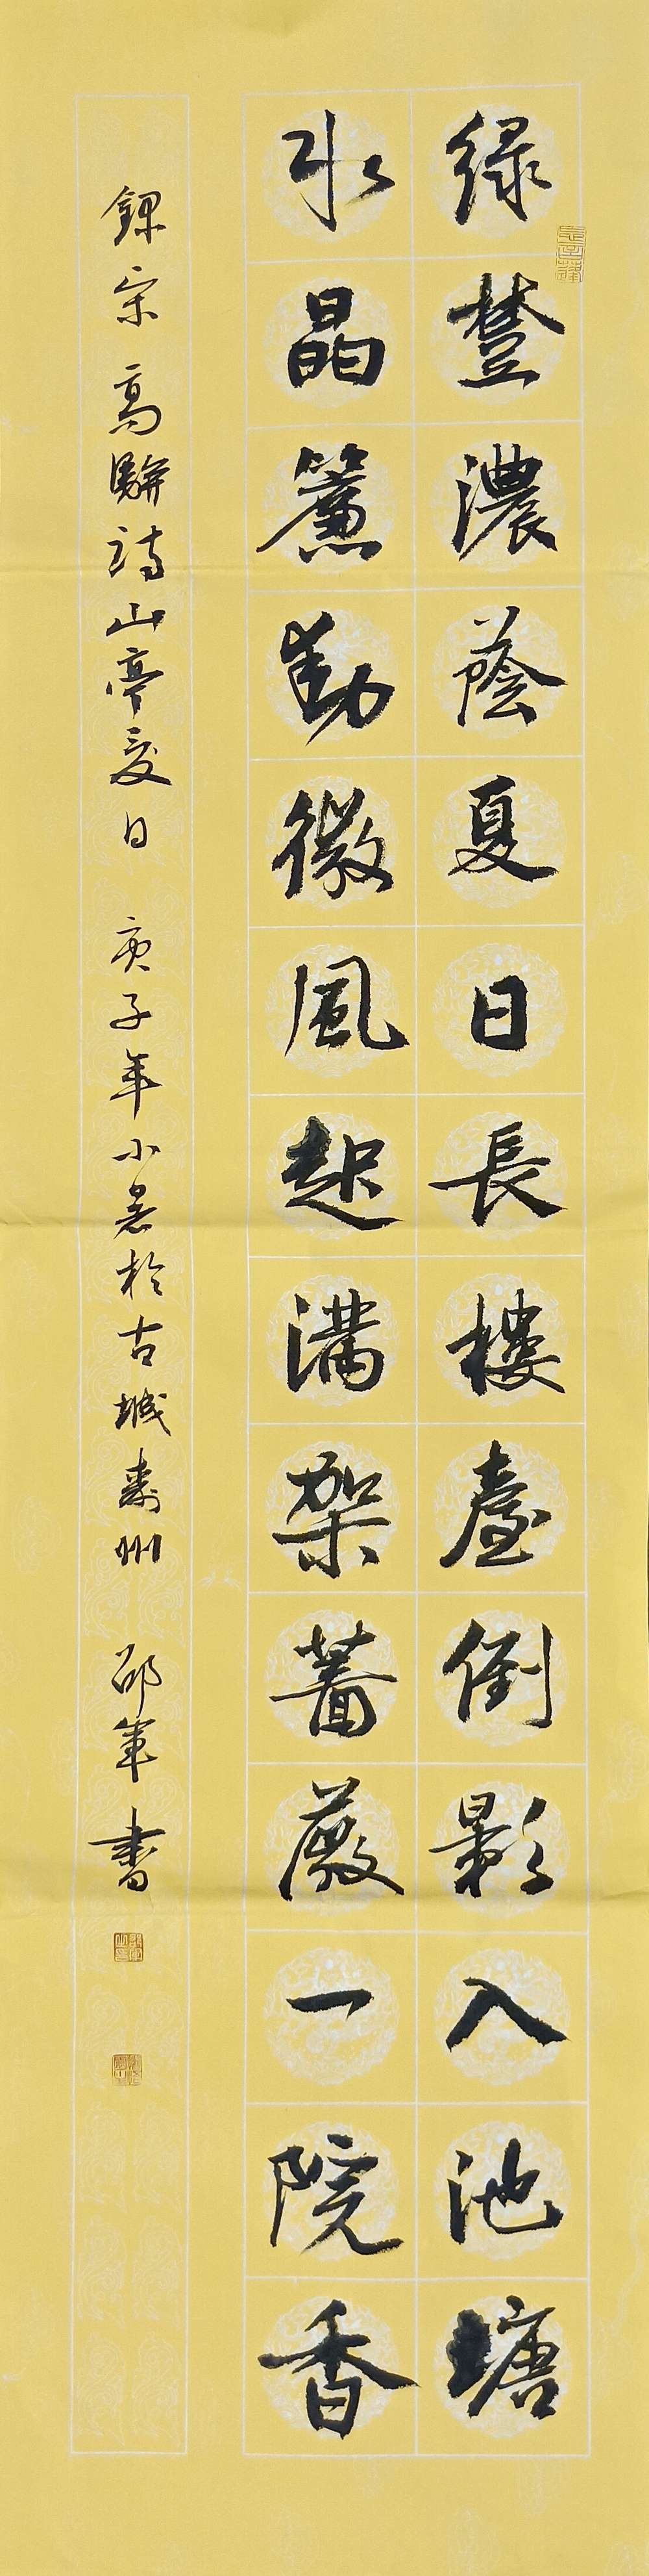 绿樹濃蔭夏日長樓臺倒影入池塘
水晶簾動微風起滿架薔薇一院香
錄宋高駢詩山亭夏日 庚子年小暑於古城壽州 邵軍書